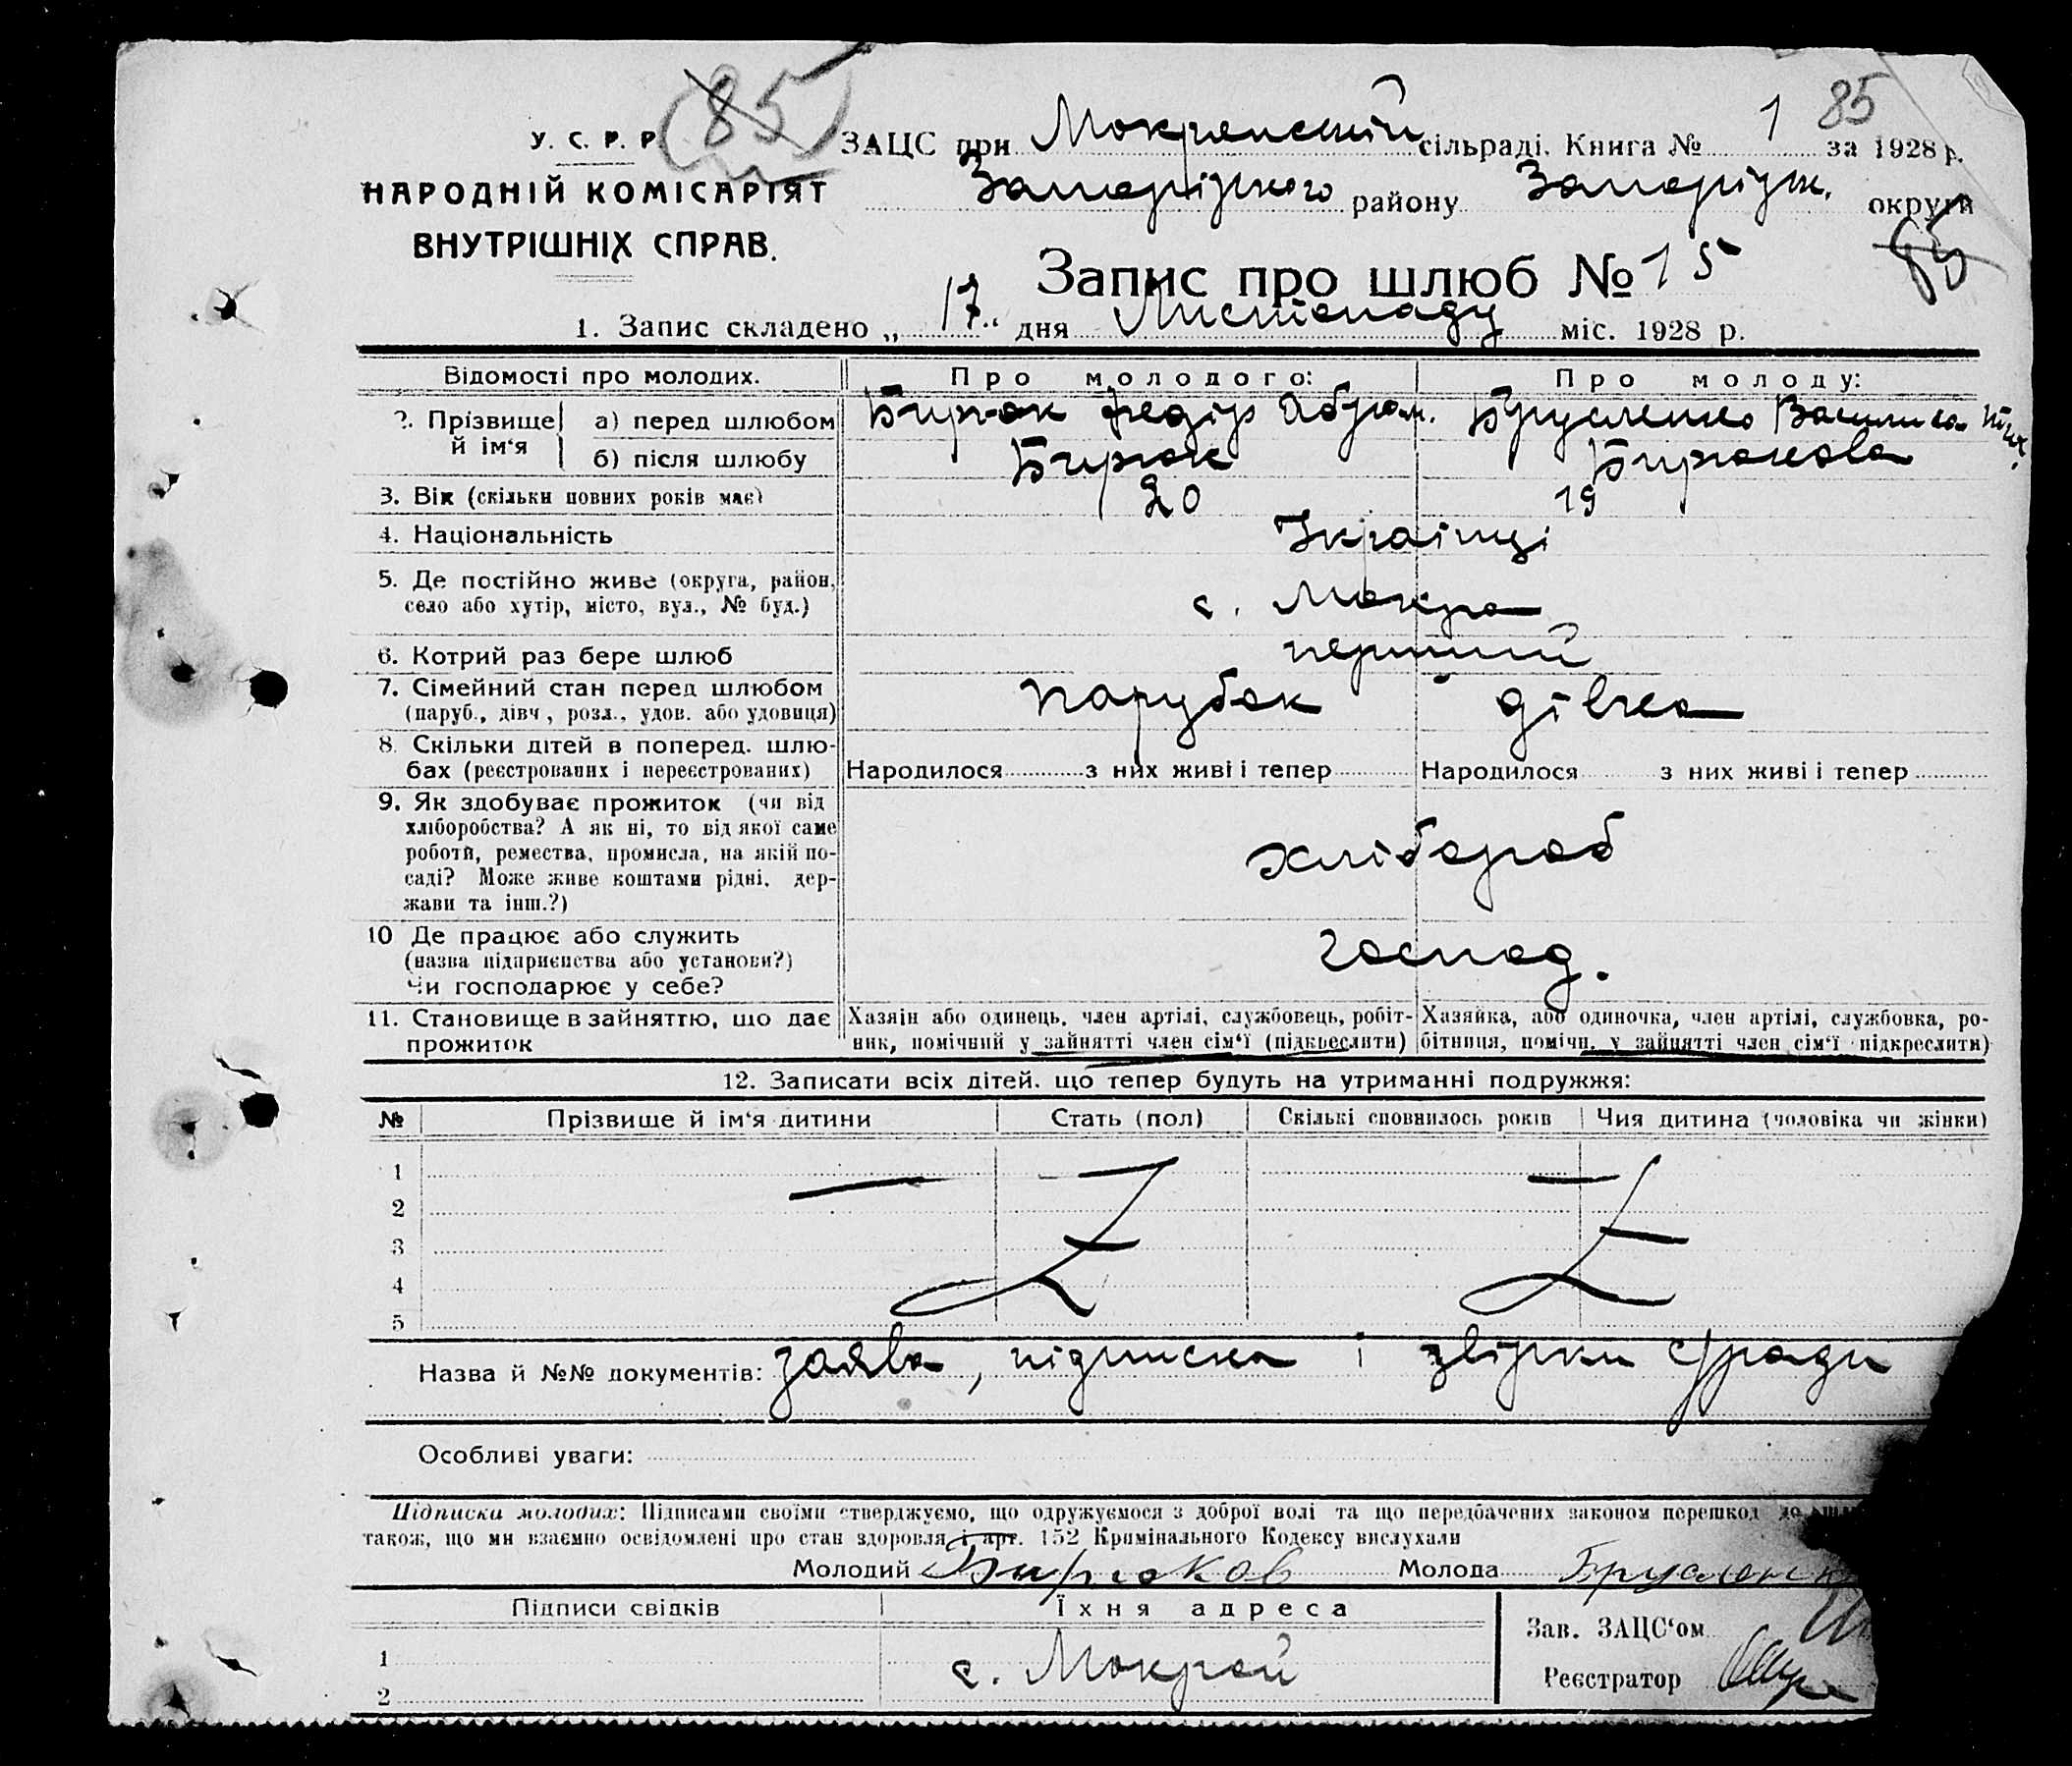 85
У. С. Р. Р. (85) ЗАЦС при Мокрянській сільраді. Книга № 1 за 1928 р.
НАРОДНІЙ КОМІСАРІЯТ Запорізького району Запоріж. округи
ВНУТРІШНІХ СПРАВ.
85
Запис про шлюб № 15
1. Запис складено „ 17 “ дня Листопаду міс. 1928 р.
Відомості про молодих. Про молодого: Про молоду:
2. Прізвище й ім‘я а) перед шлюбом Бирюк Федір Абрам. Брусленко Василиса
б) після шлюбу Бирюк Бирюкова
3. Вік (скільки повних років має) 20 19
4. Національність Українці
5. Де постійно живе (округа, район,
село або хутір, місто, вул., № буд.) с. Мокра
6. Котрий раз бере шлюб перший
7. Сімейний стан перед шлюбом парубок дівка
(паруб., дівч., розл., удов. або удовиця)
8. Скільки дітей в поперед. шлю-
бах (реєстрованих і нереєстрованих) Народилося з них живі і тепер Народилося з них живі і тепер
9. Як здобуває прожиток (чи від
хліборобства? А як ні, то від якої саме
роботи, ремества, промисла, на якій по- хлібороб
саді? Може живе коштами рідні, дер-
жави та інш.?)
10 Де працює або служить господ.
(назва підприємства або установи?)
Чи господарює у себе?
11. Становище в зайняттю, що дає Хазяїн або одинець, член артілі, службовець, робіт- Хазяйка, або одиночка, член артілі, службовка, ро-
прожиток ник, помічний у зайнятті член сім‘ї (підкреслити) бітниця, помічн. у зайнятті член сім‘ї підкреслити)
12. Записати всіх дітей, що тепер будуть на утриманні подружжя:
№ Прізвище й ім‘я дитини Стать (пол) Скількі сповнилось років Чия дитина (чоловіка чи жінки)
1
2
3
4
5
Назва й №№ документів: заява, підписка і звірки с/ради
Особливі уваги:
Підписки молодих: Підписами своїми стверджуємо, що одружуємося з доброї волі та що передбачених законом перешкод до
також, що ми взаємно освідомлені про стан здоровля і арт. 152 Кримінального Кодексу вислухали
Молодий Бирюков Молода Брусленк
Підписи свідків Їхня адреса
Зав. ЗАЦС‘ом
1 с. Мокрой
Реєстратор
2